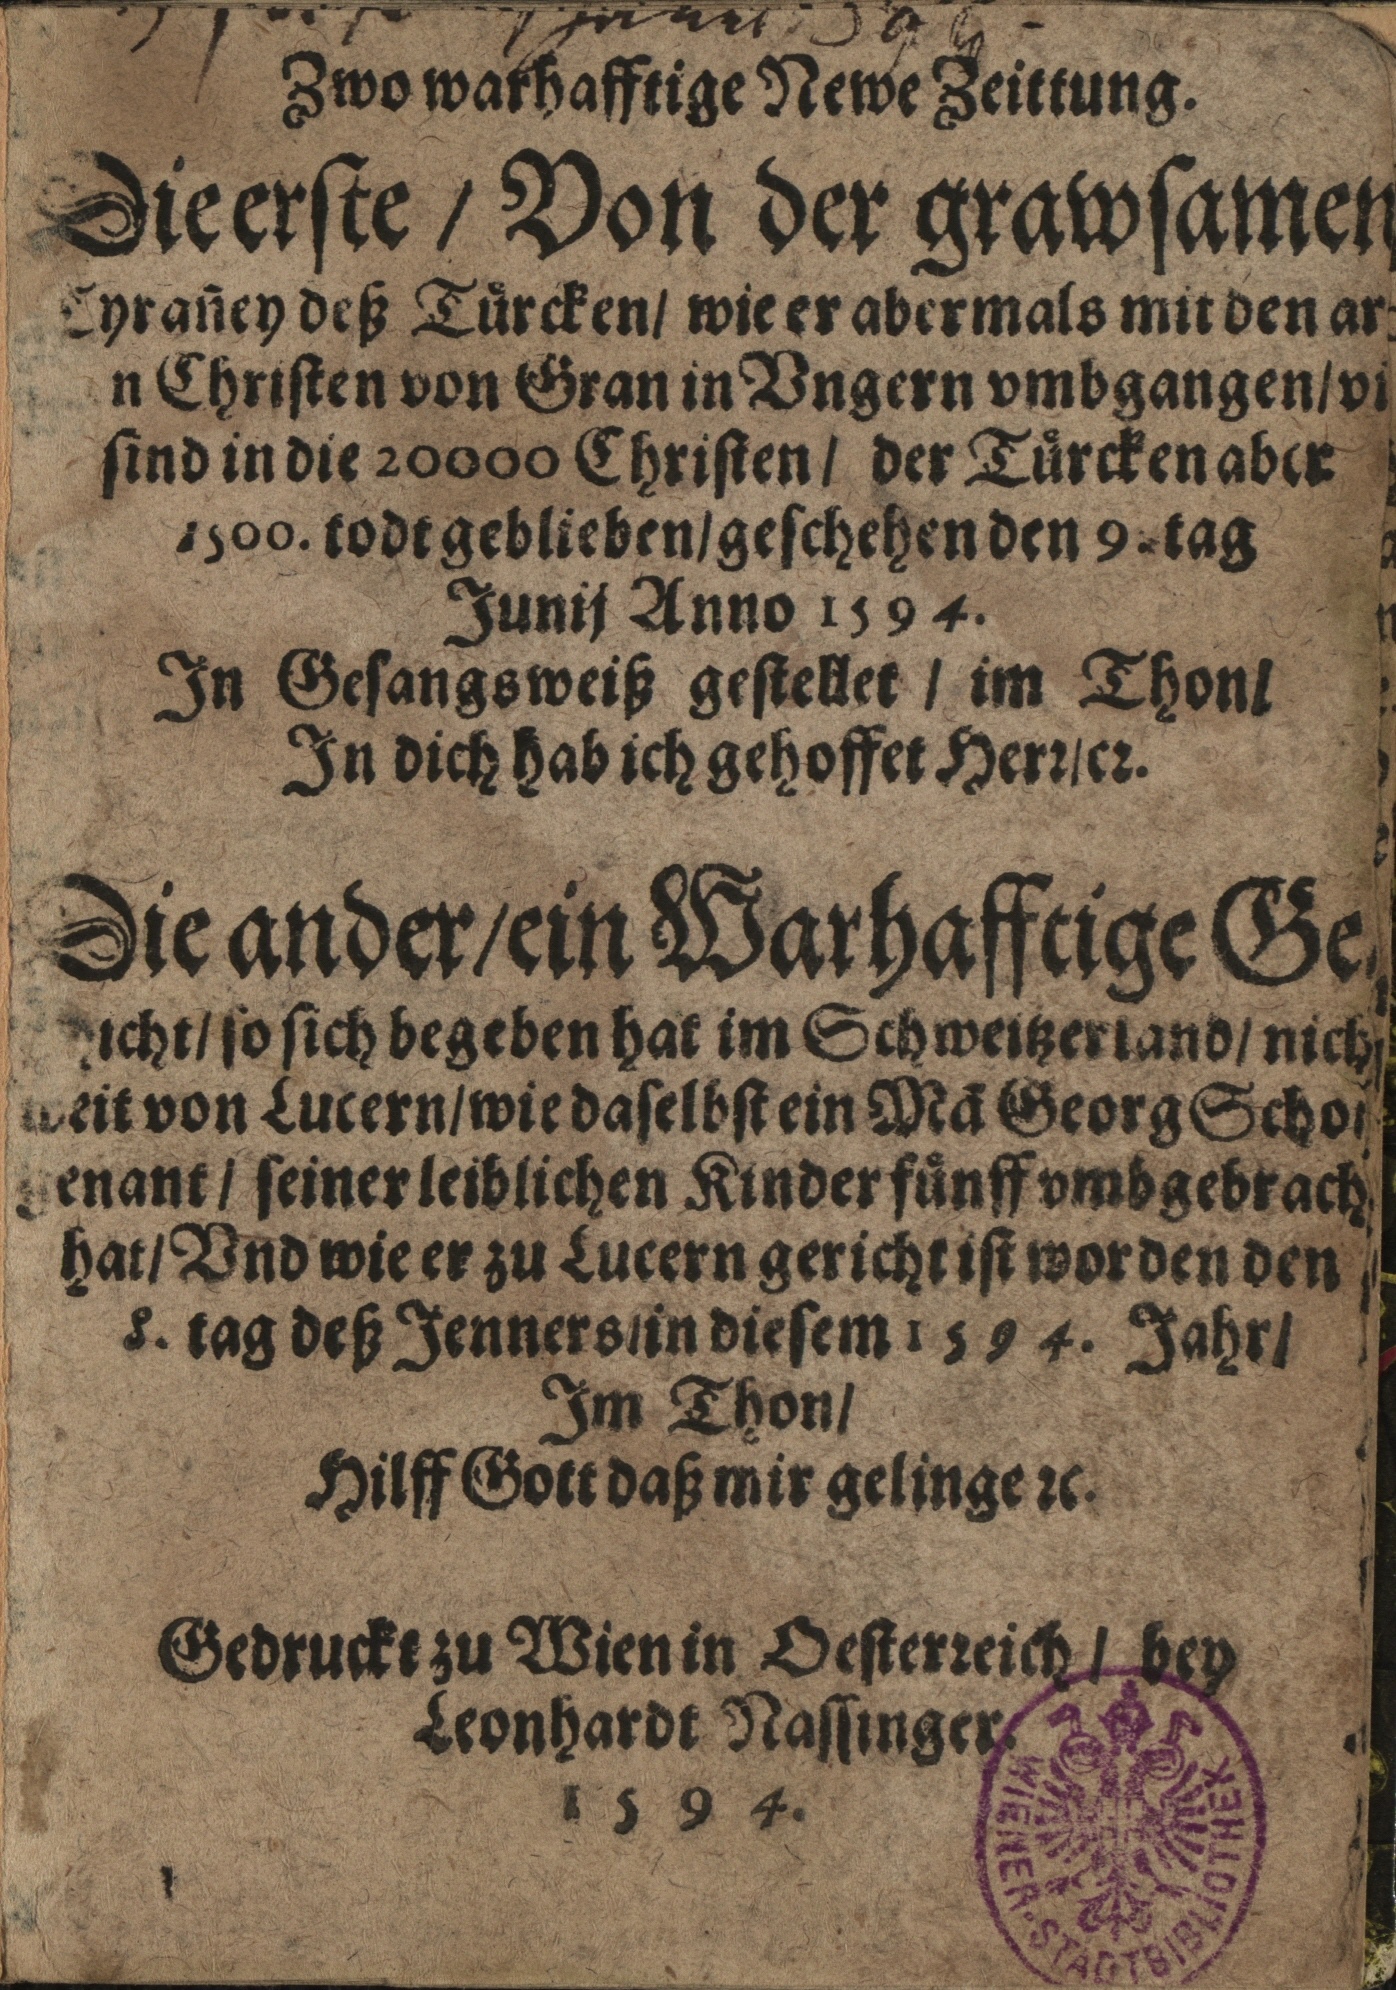 Zwo warhafftige Newe Zeittung.
Die erste / Von der grawsamen
Tyrañey deß Tuͤrcken/ wie er abermals mit den ar⸗
n Christen von Gran in Vngern vmbgangen/
sind in die 20000 Christen/ der Tuͤrcken aber
1500. todt geblieben/ geschehen den 9. tag
Junij Anno 1594.
In Gesangsweiß gestellet / im Thon/
In dich hab ich gehoffet Herr/ꝛc.
Die ander/ein Warhafftige Ge⸗
icht/ so sich begeben hat im Schweitzerland/ nich
weit von Lucern/wie daselbst ein Mā Georg Scho⸗
genant/ seiner leiblichen Kinder fuͤnff vmbgebrach
hat/ Vnd wie er zu Lucern gericht ist worden den
8. tag deß Jenners/in diesem 1594. Jahr/
Im Thon/
Hilff Gott daß mir gelinge ꝛc.
Gedruckt zu Wien in Oesterreich / bey
Leonhardt Nassinger.
1594.
WIENER·STADTBIBLIOTHEK